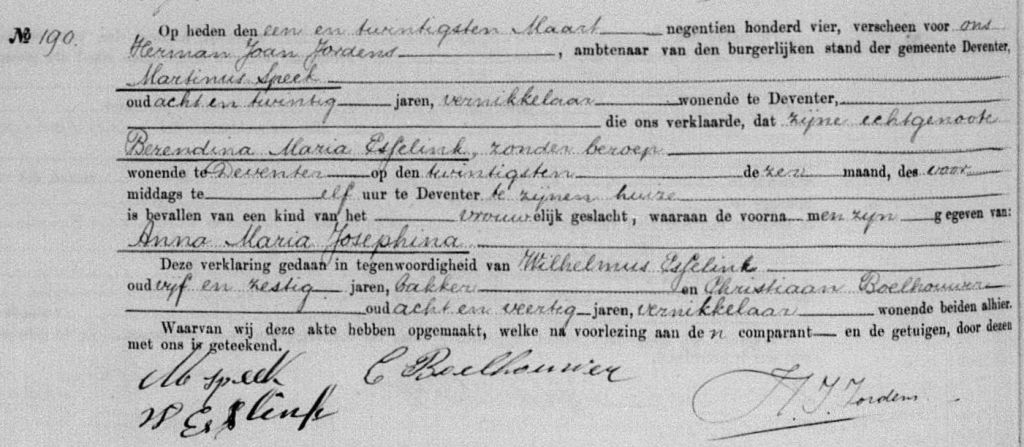 № 190. Op heden den een en twintigsten Maart negentien honderd vier, verscheen voor ons
Herman Joan Jordens, ambtenaar van den burgerlijken stand der gemeente Deventer,
Martinus Speek
oud acht en twintig jaren, vernikkelaar wonende te Deventer,
die ons verklaarde, dat zijne echtgenoote
Berendina Maria Esselink, zonder beroep
wonende te Deventer op den twintigsten dezer maand, des voor
middags te elf uur te Deventer te zijnen huize
is bevallen van een kind van het vrouwelijk geslacht, waaraan de voornamen zijn gegeven van:
Anna Maria Josephina
Deze verklaring gedaan in tegenwoordigheid van Wilhelmus Esselink
oud vijf en zestig jaren, bakker en Christiaan Boelhouwer
oud acht en veertig jaren, vernikkelaar wonende beiden alhier.
Waarvan wij deze akte hebben opgemaakt, welke na voorlezing aan den comparant en de getuigen, door dezen
met ons is geteekend.
M Speek C Boelhouwer
W Esslink H. J. Jordens